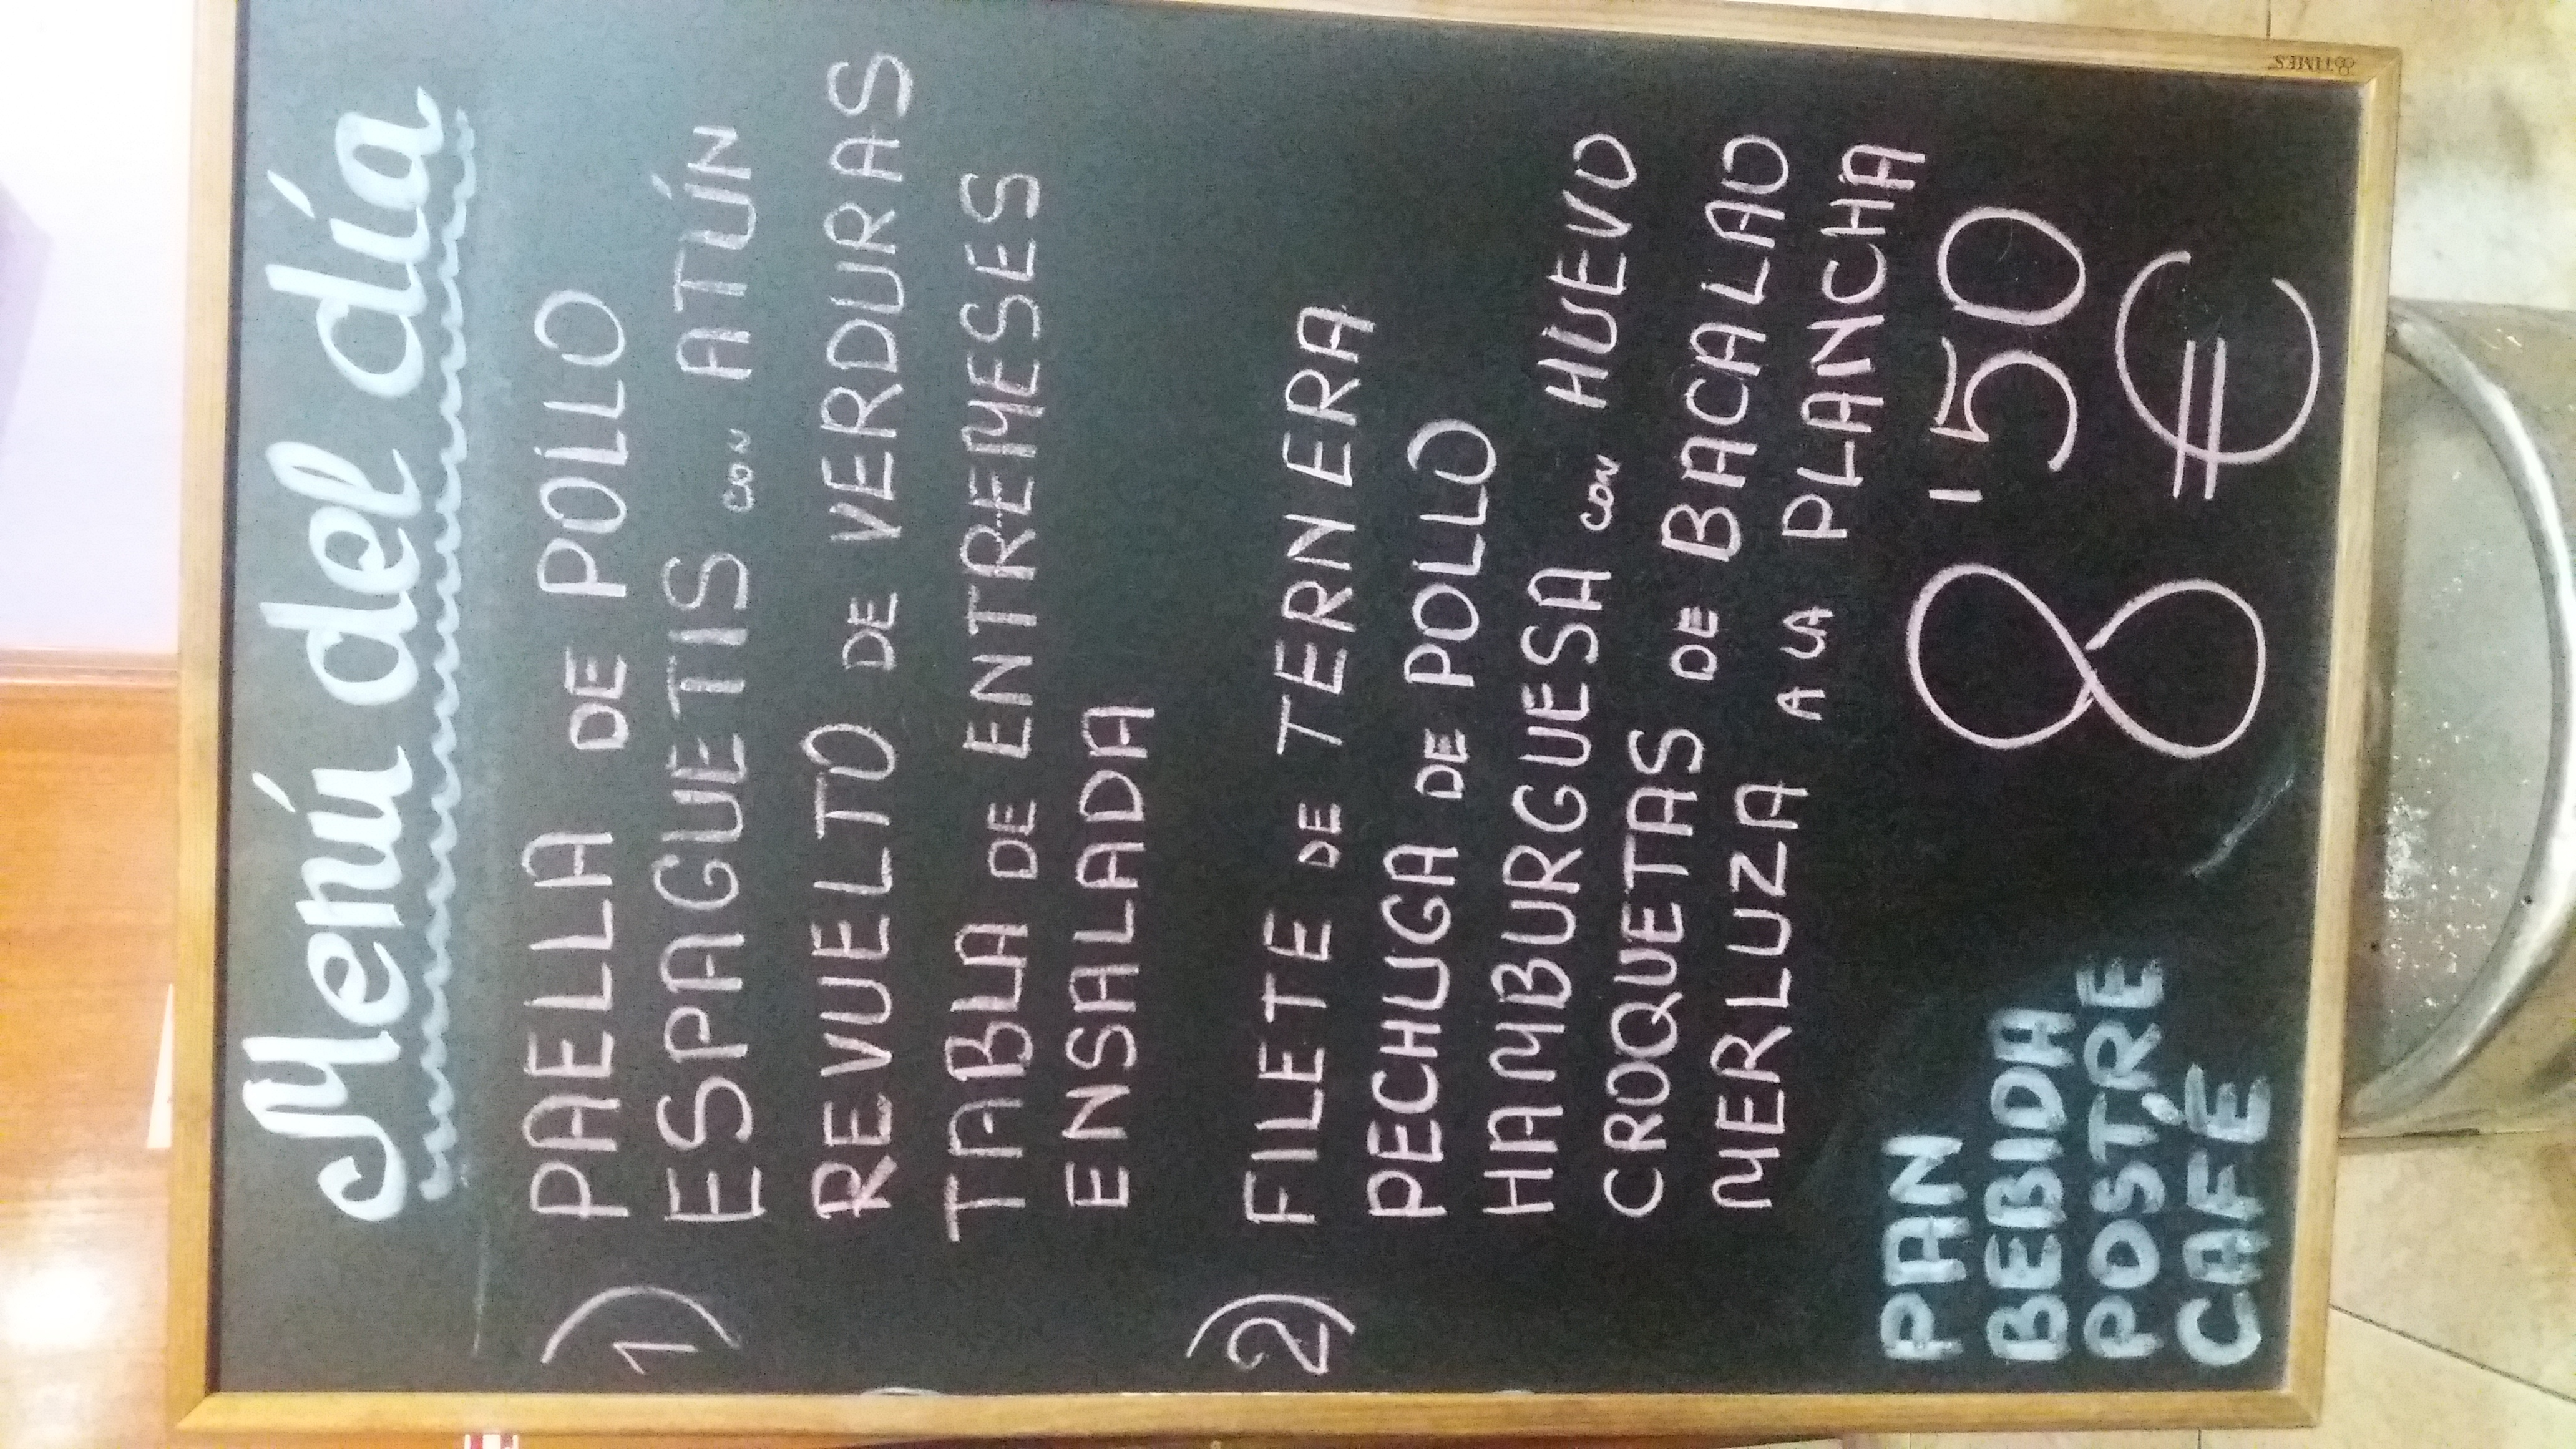 Menú del día
1) PAELLA DE POLLO
ESPAGUETIS CON ATÚN
REVUELTO DE VERDURAS
TABLA DE ENTREMESES
ENSALADA
2) FILETE DE TERNERA
PECHUGA DE POLLO
HAMBURGUESA CON HUEVO
CROQUETAS DE BACALAO
MERLUZA A LA PLANCHA
PAN
BEBIDA
POSTRE
CAFÉ
8'50
€